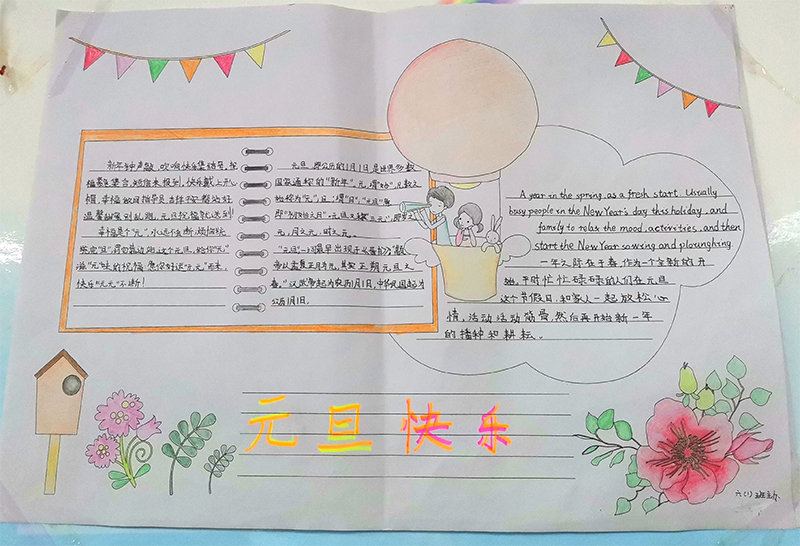 新年钟声敲,吹响快乐集结号,祝
福短息集合,短信来报到,快乐戴上开心
帽,幸福做口指导员,吉祥平安都站好
温馨甜蜜别乱跑,元旦祝福就送到!
幸福是个"元",永远不会断,烦恼统
统完"旦",
滋"元"味的祝福,愿你好运"元元"而来,
快乐"元元"不断!
元旦,即公历的1月1日,是世界多数
国家通称的"新年"。元,谓"始",凡数之
始称为"元";旦,谓"日";"元旦"意
即"初始之日"。元旦又称"三元",即岁之
元、月之元、时之元。
"元旦"一词最早出现于《晋书》:"颛
帝以孟夏正月为元,其实正朔元旦之
春。"汉武帝起为农历1月1日,中华民国起为
公历1月1日。
A year in the spring, as a fresh start. Usually
busy people in the New Year's day this holiday, and
family to relax the mood, activities, and then
start the New Year sowing and ploughing.
一年之际在于春,作为一个全新的开
始。平时忙忙碌碌的人们在元旦
这个节假日,和家人一起放松心
情,活动活动筋骨,然后再开始新一年
的播种和耕耘。
元旦快乐
六(1)班